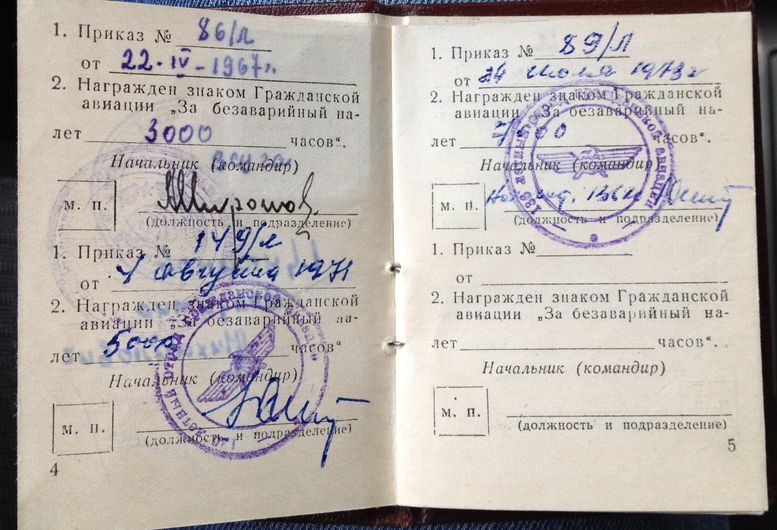 1. Приказ № 86/л
от 22-IV-1967г.
2. Награжден знаком Гражданской
авиации „За безаварийный на-
лет 3000 часов".
Начальник (командир)
М. П.
(должность и подразделение)
1. Приказ № 149/л
от 4 августа 1971
2. Награжден знаком Гражданской
авиации „За безаварийный на-
лет 5000 часов".
Начальник (командир)
М. П.
(должность и подразделение)
4
1. Приказ № 89/Л
от 24 июля 1973г
2. Награжден знаком Гражданской
авиации „За безаварийный на-
лет часов".
Начальник (командир)
М. П.
(должность и подразделение)
1. Приказ №
от
2. Награжден знаком Гражданской
авиации „За безаварийный на-
лет часов".
Начальник (командир)
М. П.
(должность и подразделение)
5